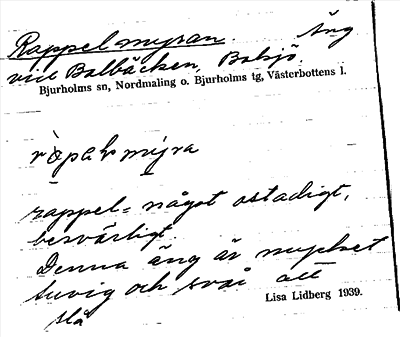 Rappelmyran. Äng
vid Balbäcken, Balsjö.
Bjurholms sn, Nordmaling o. Bjurholms tg, Västerbottens l.
rappel= något ostadigt,
besvärligt
Denna äng är mycket
tuvig och svår att
slå
Lisa Lidberg 1939.